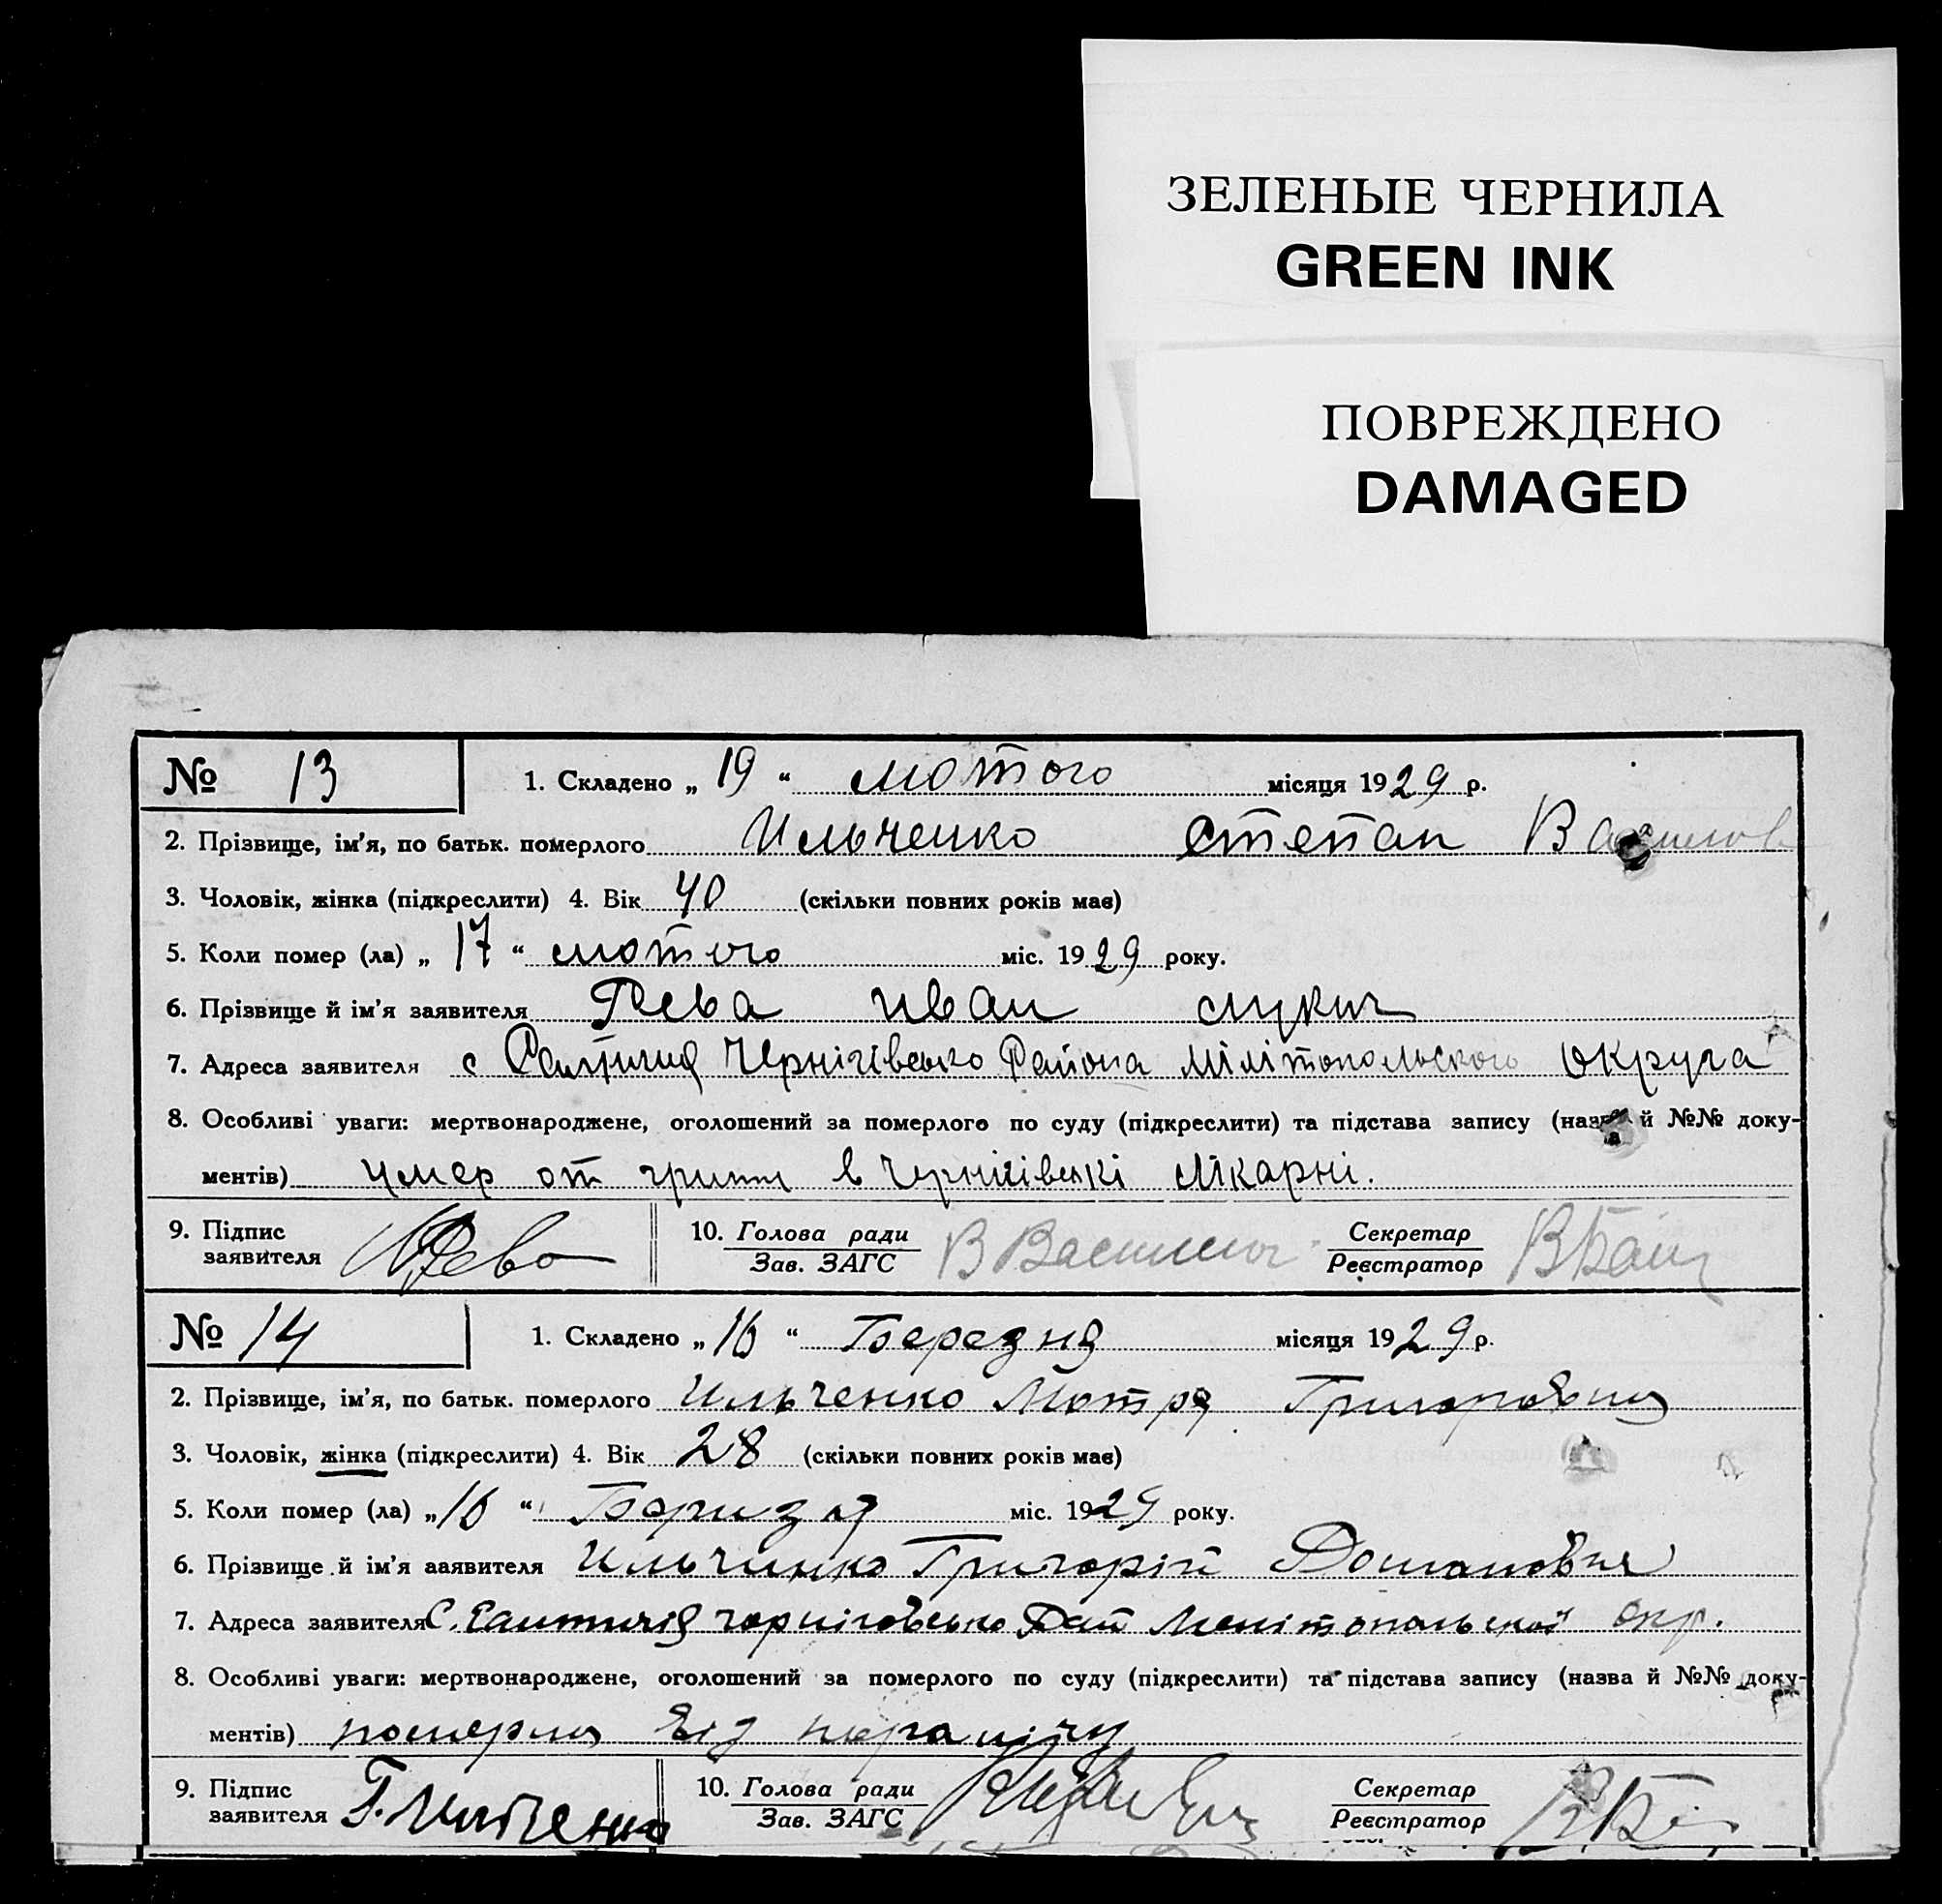 ЗЕЛЕНЫЕ ЧЕРНИЛА
GREEN INK
ПОВРЕЖДЕНО
DAMAGED
№ 13 1. Складено „ 19 “ лютого місяця 1929 р.
2. Прізвище, ім'я, по батьк. померлого Ильченко Степан
3. Чоловік, жінка (підкреслити) 4. Вік 40 (скільки повних років має)
5. Коли помер (ла) „ 17 “ лютого міс. 1929 року.
6. Прізвище й ім'я заявителя Рева Иван Лукич
7. Адреса заявителя с Чернігівсько Района Мілітопольского Округа
8. Особливі уваги: мертвонароджене, оголошений за померлого по суду (підкреслити) та підстава запису (назва й №№ доку-
ментів) умер от грипи в Чернігівскі лікарні.
9. Підпис заявителя Рева 10. Голова ради Зав. ЗАГС В Василенч Секретар Реєстратор
№ 14 1. Складено „ 16 “ Березня місяця 1929 р.
2. Прізвище, ім'я, по батьк. померлого Ильченко Мотря Григоровна
3. Чоловік, жінка (підкреслити) 4. Вік 28 (скільки повних років має)
5. Коли помер (ла) „ 16 “ міс. 1929 року.
6. Прізвище й ім'я заявителя Ильчинко Григорій
7. Адреса заявителя С. Мелітопольської Окр.
8. Особливі уваги: мертвонароджене, оголошений за померлого по суду (підкреслити) та підстава запису (назва й №№ доку-
ментів) померла від паралічу
9. Підпис заявителя 10. Голова ради Зав. ЗАГС Секретар Реєстратор